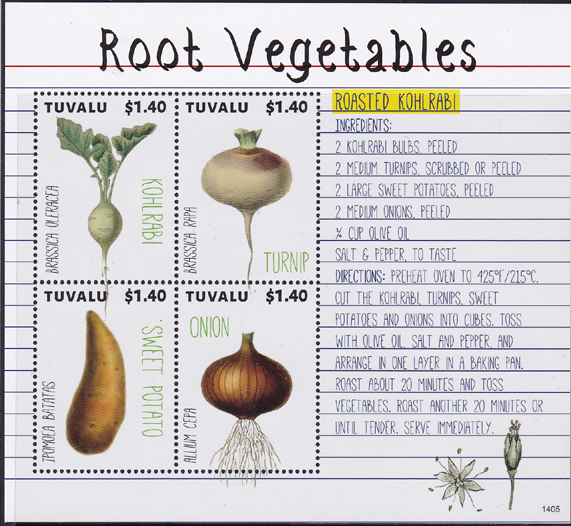 Root Vegetables
TUVALU $1.40
BRASSICA OLERACEA
KOHLRABI
TUVALU $1.40
BRASSICA RAPA
TURNIP
TUVALU $1.40
IPOMOLA BATATAS
SWEET POTATO
TUVALU $1.40
ONION
ALLIUM CEPA
ROASTED KOHLRABI
INGREDIENTS:
2 KOHLRABI BULBS, PEELED
2 MEDIUM TURNIPS, SCRUBBED OR PEELED
2 LARGE SWEET POTATOES, PEELED
2 MEDIUM ONIONS, PEELED
CUP OLIVE OIL
SALT & PEPPER, TO TASTE
DIRECTIONS: PREHEAT OVEN TO 425°F/215°C.
CUT THE KOHLRABI, TURNIPS, SWEET
POTATOES AND ONIONS INTO CUBES. TOSS
WITH OLIVE OIL, SALT AND PEPPER, AND
ARRANGE IN ONE LAYER IN A BAKING PAN.
ROAST ABOUT 20 MINUTES AND TOSS
VEGETABLES. ROAST ANOTHER 20 MINUTES OR
UNTIL TENDER. SERVE IMMEDIATELY.
1405